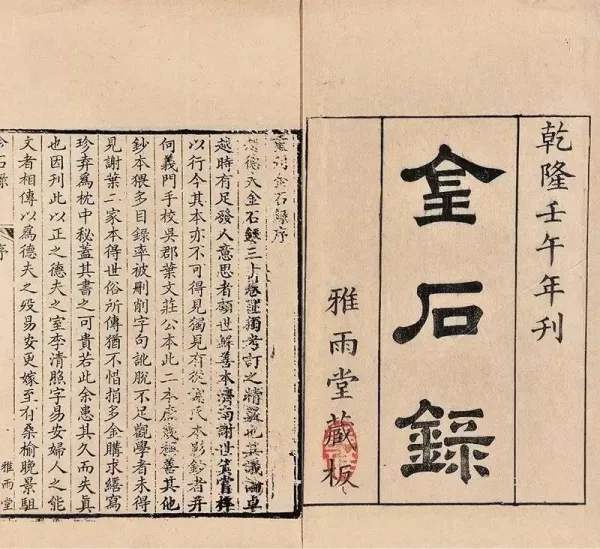 乾隆壬午年刊
金石錄
雅雨堂藏板
重刊金石錄序
趙德夫金石錄三十卷匪獨考訂之精覈也其議論卓
越時有足發人意思者顧世鮮善本濟南謝世箕嘗梓
以行今其本亦不可得見獨見有從謝氏本影鈔者并
何義門手校吳郡葉文莊公本此二本庶幾稱善其他
鈔本猥多目錄率被刪削字句訛脫不足觀學者未得
見謝葉二家本得世俗所傳猶不惜捐多金購求繕寫
珍弆為枕中秘蓋其書之可貴若此余患其久而失真
也因刊此以正之德夫之室李清照字易安婦人之能
文者相傳以爲德夫之歿易安更嫁至有桑榆晚景駔
金石錄 序 雅雨堂